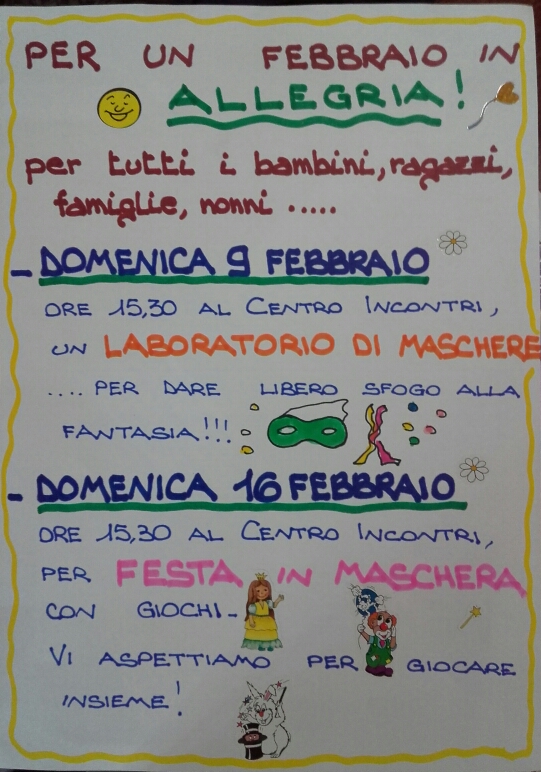 PER UN FEBBRAIO IN
ALLEGRIA!
per tutti i bambini, ragazzi,
famiglie, nonni .....
- DOMENICA 9 FEBBRAIO
ORE 15,30 AL CENTRO INCONTRI,
UN LABORATORIO DI MASCHERE
.... PER DARE LIBERO SFOGO ALLA
FANTASIA!!!
- DOMENICA 16 FEBBRAIO
ORE 15,30 AL CENTRO INCONTRI,
PER FESTA IN MASCHERA
CON GIOCHI-
VI ASPETTIAMO PER GIOCARE
INSIEME!